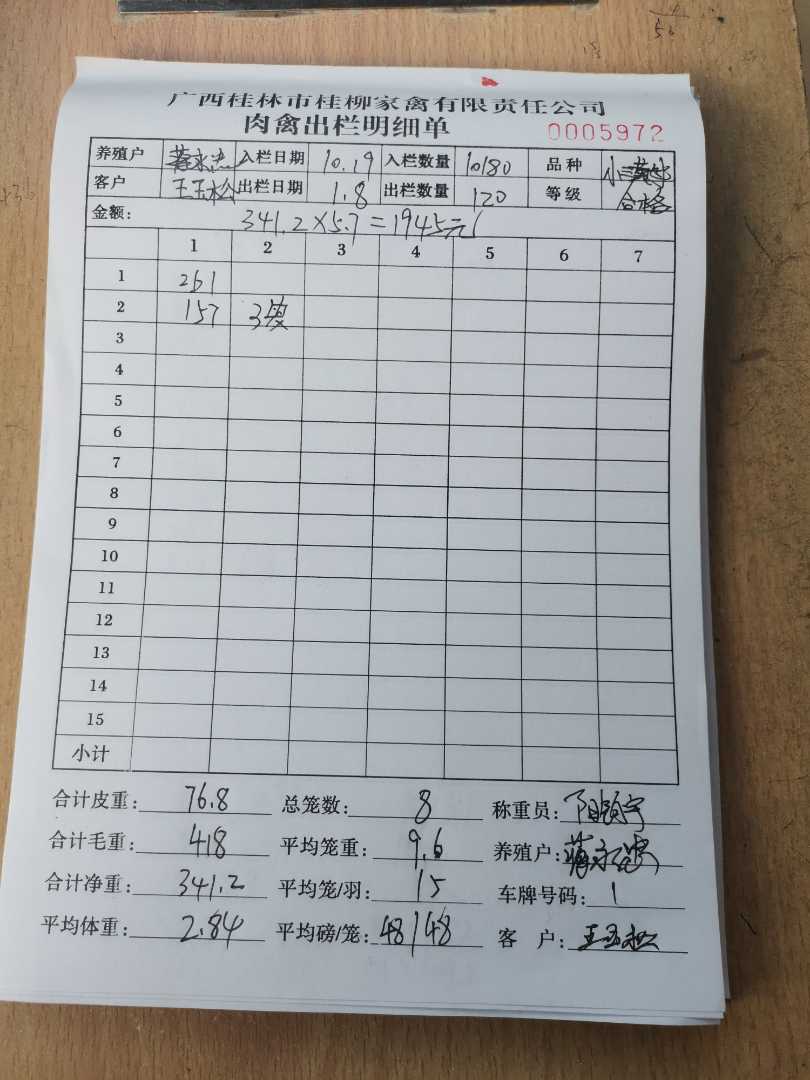 广西桂林市桂柳家禽有限责任公司
肉禽出栏明细单 0005972
养殖户 入栏日期 10.19 入栏数量 10180 品种
客户 王玉松 出栏日期 1.8 出栏数量 120 等级 合格
金额: 341.2×5.7=1945元
1 2 3 4 5 6 7
1 261
2 157 3
3
4
5
6
7
8
9
10
11
12
13
14
15
小计
合计皮重: 76.8 总笼数: 8 称重员:
合计毛重: 418 平均笼重: 9.6 养殖户:
合计净重: 341.2 平均笼/羽: 15 车牌号码: 1
平均体重: 2.84 平均磅/笼: 48/48 客户: 王玉松